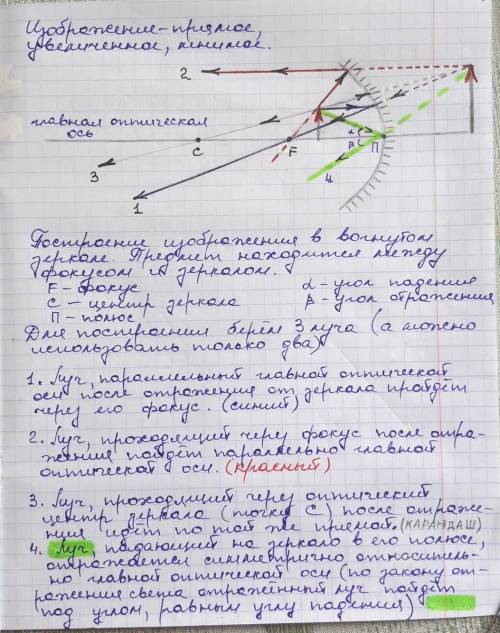 Изображение-прямое,
увеличенное, мнимое.
2
главная оптическая
ось
C
F
α
β
П
3
4
1
Построение изображения в вогнутом
зеркале. Предмет находится между
фокусом и зеркалом.
F - фокус
α - угол падения
C - центр зеркала
β - угол отражения
П - полюс
Для построения берём 3 луча (а можно
использовать только два)
1. Луч, параллельный главной оптической
оси после отражения от зеркала пройдёт
через его фокус. (синий)
2. Луч, проходящий через фокус после отра-
жения пойдёт параллельно главной
оптической оси. (красный)
3. Луч, проходящий через оптический
центр зеркала (точку C) после отраже-
ния идёт по той же прямой. (КАРАНДАШ)
4. Луч, падающий на зеркало в его полюсе,
отражается симметрично относитель-
но главной оптической оси (по закону от-
ражения света отражённый луч пойдёт
под углом, равным углу падения)